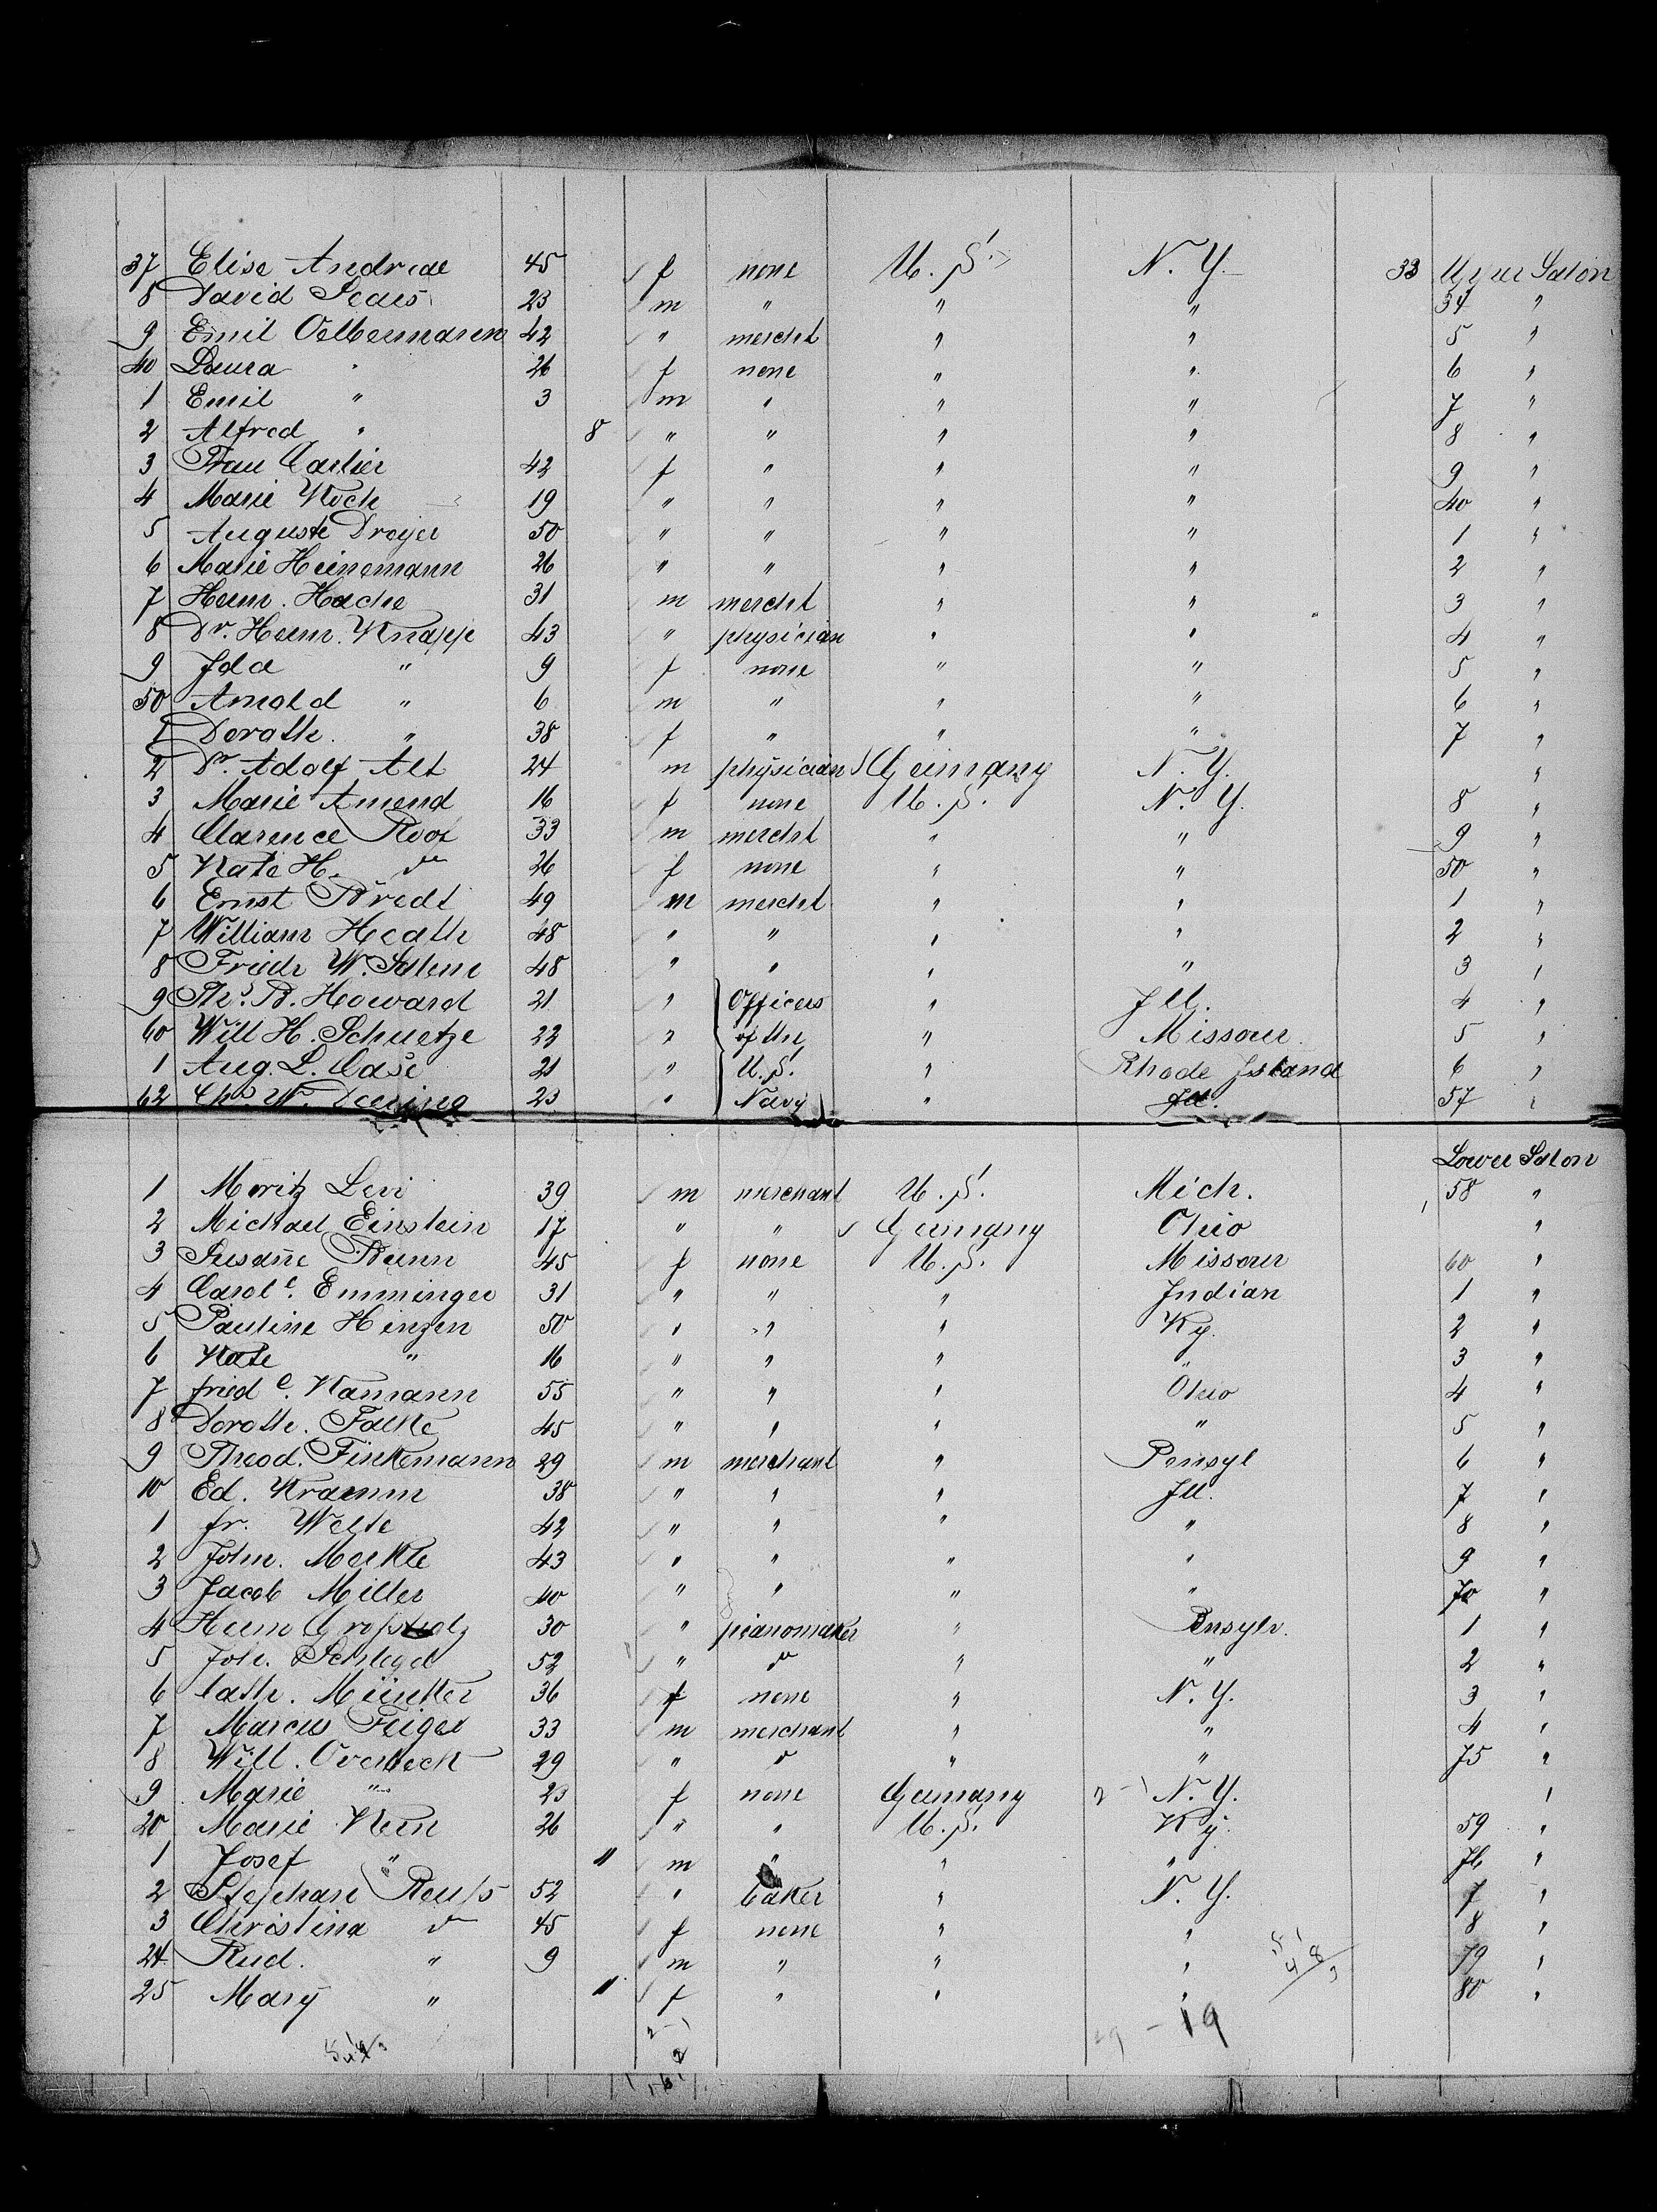 37 Elise Andreae 45 f none U. S. N. Y. 33 Upper Salon
8 David Sears 23 m " " " 34 "
9 Emil Oelbermann 42 " mercht " " 5 "
40 Laura " 26 f none " " 6 "
1 Emil " 3 m " " " 7 "
2 Alfred " 8 " " " " 8 "
3 Frau Cartier 42 f " " " 9 "
4 Marie Koch 19 " " " " 40 "
5 Auguste Dreyer 50 " " " " 1 "
6 Marie Heinemann 26 " " " " 2 "
7 Herm. Hache 31 m mercht " " 3 "
8 Dr. Herm. Knapp 43 " physician " " 4 "
9 Ida " 9 f none " " 5 "
50 Arnold " 6 m " " " 6 "
1 Doroth. " 38 f " " " 7 "
2 Dr. Adolf Alt 24 m physician Germany N. Y. "
3 Marie Amend 16 f none U. S. N. Y. 8 "
4 Clarence Roof 33 m mercht " " 9 "
5 Kate H. do 26 f none " " 50 "
6 Ernst Bredt 49 m mercht " " 1 "
7 William Heath 48 " " " " 2 "
8 Friedr W. 48 " " " " 3 "
9 Ths. B. Howard 21 " Officers " Ill. 4 "
60 Will H. Schuetze 22 " of the " Missour. 5 "
1 Aug. L. Case 21 " U. S. " Rhode Island 6 "
62 Chs. W. Deering 23 " Navy " Ill. 57 "
Lower Salon
1 Moritz Levi 39 m merchant U. S. Mich. 58 "
2 Michael Einstein 17 " " Germany Ohio "
3 Susanne 45 f none U. S. Missour 60 "
4 Carole. Emminger 31 " " " Indian 1 "
5 Pauline Hinzen 50 " " " Ky. 2 "
6 Kate " 16 " " " " 3 "
7 friede. Kamann 55 " " " Ohio 4 "
8 Doroth. Falke 45 " " " " 5 "
9 Theod. Finkemann 29 m merchant " Pensyl 6 "
10 Ed. Kramm 38 " " " Ill. 7 "
1 fr. Welte 42 " " " " 8 "
2 John. Merkle 43 " " " " 9 "
3 Jacob Miller 40 " " " " 70 "
4 Herm 30 " pianomaker " Pensylv. 1 "
5 Joh. Schlegel 52 " do " " 2 "
6 Cath. Münker 36 f none " N. Y. 3 "
7 Marcus Feigel 33 m merchant " " 4 "
8 Will. Overbeck 29 " do " " 75 "
9 Marie " 23 f none Germany 2 - 1 N. Y. "
20 Marie Kern 26 " " U. S. Ky. 59 "
1 Josef " 11 m " " " 76 "
2 Stephan Reuss 52 " baker " N. Y. 7 "
3 Christina do 45 f none " " 8 "
24 Rud. " 9 m " " " 79 "
25 Mary " 11 f " " " 80 "
- 19